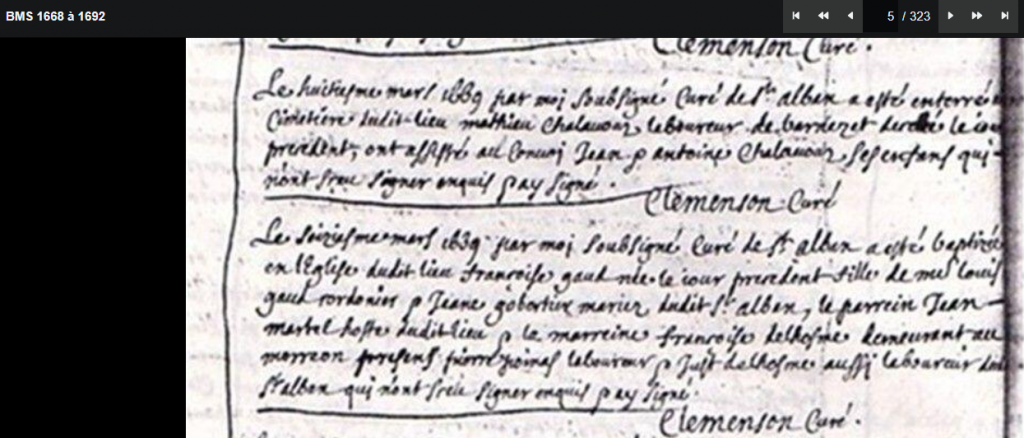 BMS 1668 à 1692
5 / 323
Clemenson Curé.
Le huitiesme mars 1669 par moi soubsigné Curé de St alban a esté enterré au
Cimetiere dudit lieu mathieu Chalavoin laboureur de bardezet decedé le iour
precedent, ont assisté au Convoi Jean & antoine Chalavoin ses enfans qui
n'ont sceu signer enquis & ay signé.
Clemenson Curé
Le seiziesme mars 1669 par moi soubsigné Curé de St alban a esté baptizée
en l'Eglise dudit lieu francoise gaud née le iour precedent fille de me louis
gaud cordonier & Jeane gobertier mariez dudit St alban, le parrein Jean
martel hoste dudit lieu & la marreine francoise delhosme demeurant au
morreon presens pierre poinas laboureur & Just delhosme aussi laboureur dud
St alban qui n'ont sceu signer enquis & ay signé.
Clemenson Curé.